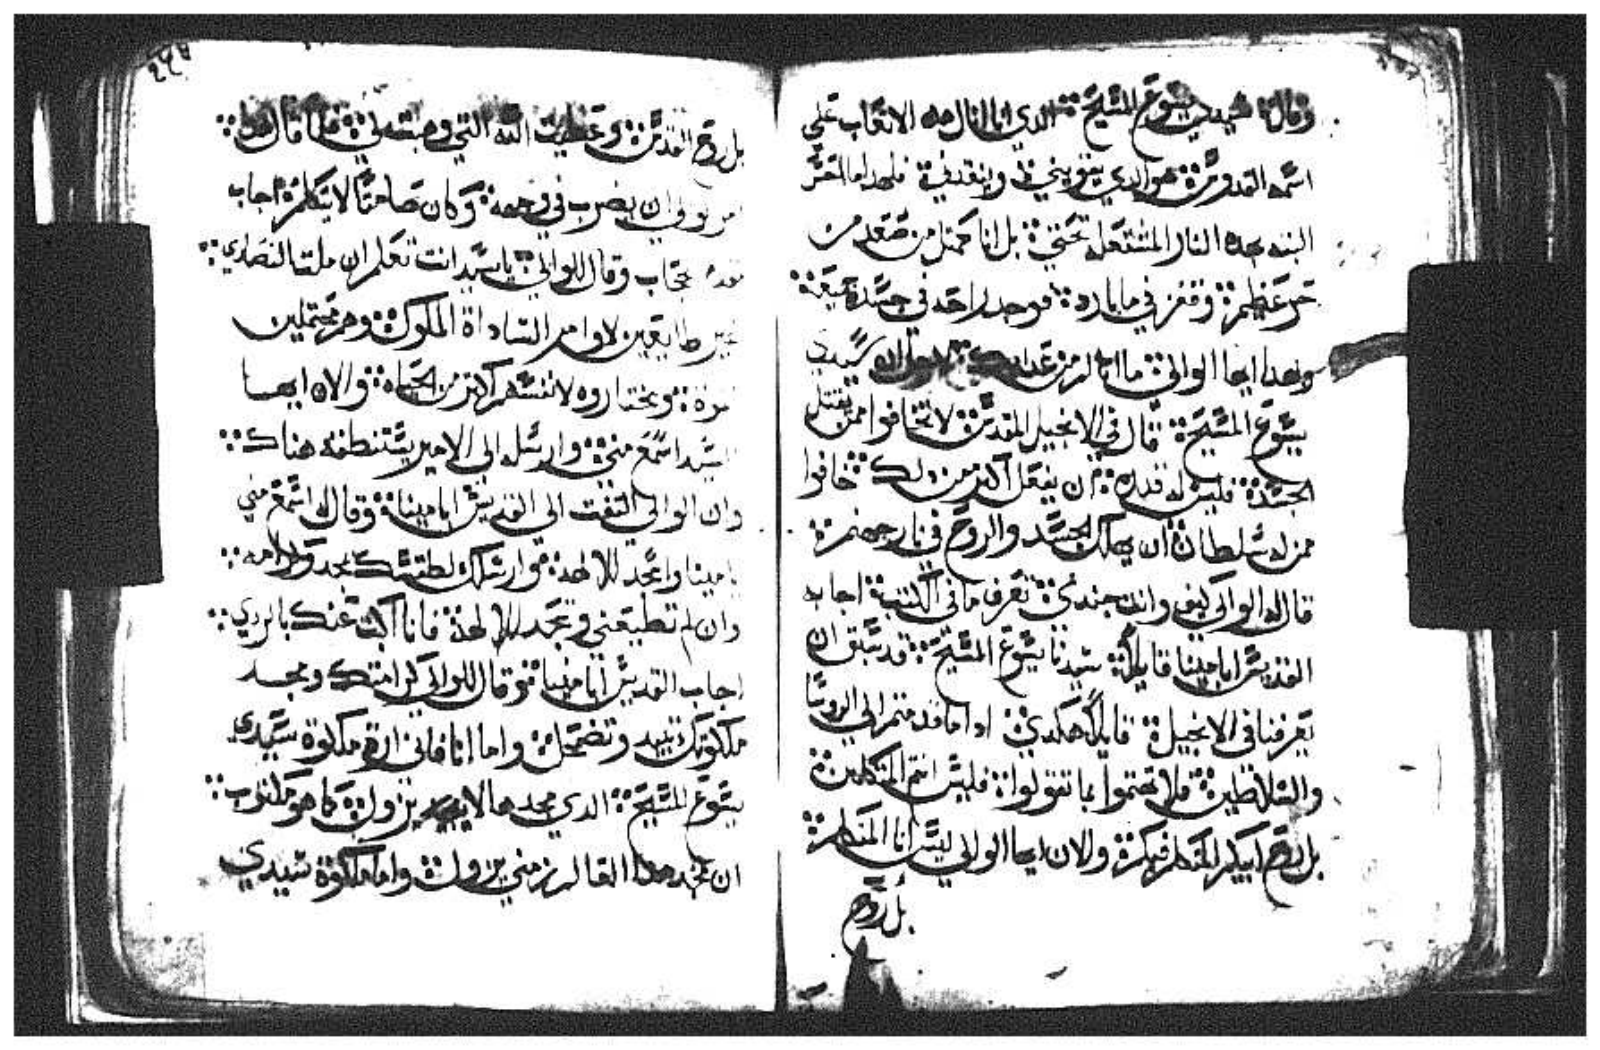 وقال سيدي يسوع المسيح الدي انا انال هده الاتعاب علي
اسمه القدوس هو الدي يقويني وينقدني فلهدا ما احس
البته بهده النار المشتعله تحتي بل انا كمتل من صعد من
حر عظيم وقفز في ما بارد فوجد راحه في جسده جميعه
وبهدا ايها الوالي ما اتالم من عدابك سيدي
يسوع المسيح قال في الانجيل المقدس لا تخافوا ممن يقتل
الجسد فليس له قدره ان يفعل اكتر من دلك خافوا
ممن له سلطان ان يهلك الجسد والروح في نار جهنم
قال له الوالي كيف وانت جندي تعرف ما في الكتب اجابه
القديس ابامينا قايلا سيدنا يسوع المسيح قد سبق ان
يعرفنا في الانجيل قايلا هكدي ادا ما قدمتم الي الروسا
والسلاطين فلا تهتموا بما تقولوا فليس انتم المتكلمين
بل روح ابيكم المتكلم فيكم والان ايها الوالي ليس انا المتكلم
بل روح
بل روح القدس وعطيت الله التي وهبت لي فلما قال هدا
امر بو في ان يضرب في وجهه وكان صامتا لا يتكلم اجاب
حجاب وقال للوالي يا سيد انت تعلم ان ملت النصاري
غير طايعين لاوامر الساداة الملوك وهم محتملين
ويختاروه لانفسهم اكتر من الحياه والان ايها
السيد اسمع مني وارسله الي الامير يستنطقه هناك
وان الوالي التفت الي القديس ابامينا وقال له اسمع مني
يامينا واسجد للالهة وارسلك لطقسك بمجد وكرامه
وان لم تطيعني وتسجد للالهة فانا اكتب عنك بالردي
اجاب القديس ابامينا وقال للوالي كرامتك ومجد
مملكتك تبيد وتضمحل واما انا فاني ارت ملكوة سيدي
يسوع المسيح الدي مجدها لا يزول كما هو مكتوب
ان مجد هدا العالم زمني يزول واما ملكوة سيدي